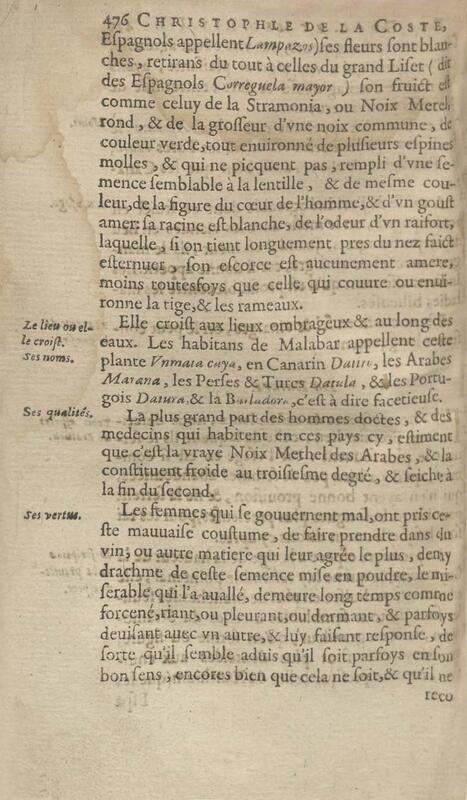 476 CHRISTOPHLE DE LA COSTE,
Espagnols appellent Lampazos) ses fleurs sont blan-
ches, retirans du tout à celles du grand Liset (dit
des Espagnols Correguela mayor) son fruict est
comme celuy de la Stramonia, ou Noix Metel,
rond, & de la grosseur d'vne noix commune, de
couleur verde, tout enuironné de plusieurs espines
molles, & qui ne picquent pas, rempli d'vne se-
mence semblable à la lentille, & de mesme cou-
leur, de la figure du cœur de l'homme, & d'vn goust
amer: sa racine est blanche, de l'odeur d'vn raifort,
laquelle, si on tient longuement pres du nez faict
esternuer, son escorce est aucunement amere,
moins toutesfoys que celle qui couure ou enui-
ronne la tige, & les rameaux.
Le lieu ou el-
le croist.
Elle croist aux lieux ombrageux & au long des
eaux. Les habitans de Malabar appellent ceste
Ses noms.
plante Vnmata caya, en Canarin Datiro, les Arabes
Marana, les Perses & Turcs Datula, & les Portu-
gois Datura, & la Burladora, c'est à dire facetieuse.
Ses qualités.
La plus grand part des hommes doctes, & des
medecins qui habitent en ces pays cy, estiment
que c'est la vraye Noix Methel des Arabes, & la
constituent froide au troisiesme degré, & seiche à
la fin du second.
Ses vertus.
Les femmes qui se gouuernent mal, ont pris ce-
ste mauuaise coustume, de faire prendre dans du
vin; ou autre matiere qui leur agrée le plus, demy
drachme de ceste semence mise en poudre, le mi-
serable qui l'a auallé, demeure long temps comme
forcené, riant, ou pleurant, ou dormant, & parfoys
deuisant auec vn autre, & luy faisant response, de
sorte qu'il semble aduis qu'il soit parfoys en son
bon sens, encores bien que cela ne soit, & qu'il ne
reco